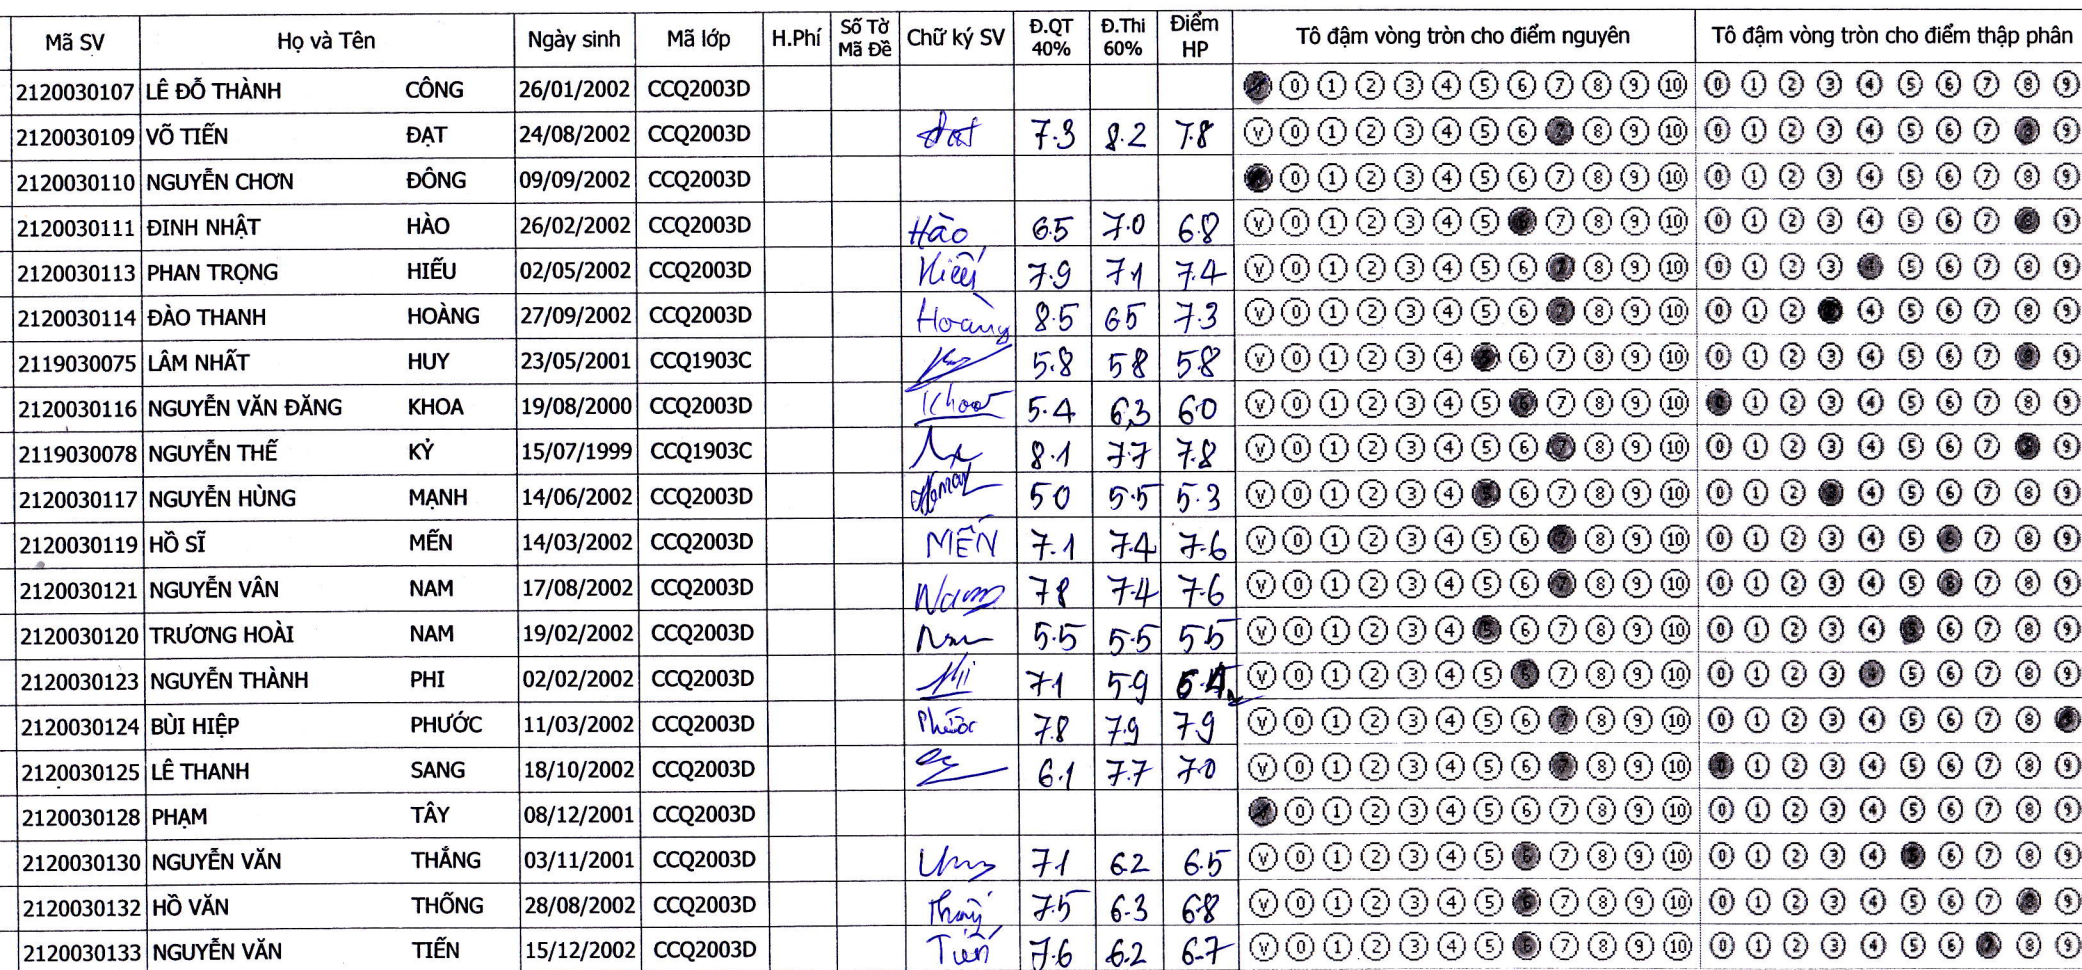 Mã SV Họ và Tên Ngày sinh Mã lớp H.Phí Số Tờ Mã Đề Chữ ký SV Đ.QT 40% Đ.Thi 60% Điểm HP Tô đậm vòng tròn cho điểm nguyên Tô đậm vòng tròn cho điểm thập phân
2120030107 LÊ ĐỖ THÀNH CÔNG 26/01/2002 CCQ2003D 0 1 2 3 4 5 6 7 8 9 10 0 1 2 3 4 5 6 7 8 9
2120030109 VÕ TIẾN ĐẠT 24/08/2002 CCQ2003D Đạt 7.3 8.2 7.8 V 0 1 2 3 4 5 6 7 8 9 10 0 1 2 3 4 5 6 7 8 9
2120030110 NGUYỄN CHƠN ĐÔNG 09/09/2002 CCQ2003D 0 1 2 3 4 5 6 7 8 9 10 0 1 2 3 4 5 6 7 8 9
2120030111 ĐINH NHẬT HÀO 26/02/2002 CCQ2003D Hào 6.5 7.0 6.8 V 0 1 2 3 4 5 6 7 8 9 10 0 1 2 3 4 5 6 7 8 9
2120030113 PHAN TRỌNG HIẾU 02/05/2002 CCQ2003D Hiếu 7.9 7.1 7.4 V 0 1 2 3 4 5 6 7 8 9 10 0 1 2 3 4 5 6 7 8 9
2120030114 ĐÀO THANH HOÀNG 27/09/2002 CCQ2003D Hoàng 8.5 65 7.3 V 0 1 2 3 4 5 6 7 8 9 10 0 1 2 3 4 5 6 7 8 9
2119030075 LÂM NHẤT HUY 23/05/2001 CCQ1903C 5.8 58 58 V 0 1 2 3 4 5 6 7 8 9 10 0 1 2 3 4 5 6 7 8 9
2120030116 NGUYỄN VĂN ĐĂNG KHOA 19/08/2000 CCQ2003D Khoa 5.4 6,3 60 V 0 1 2 3 4 5 6 7 8 9 10 0 1 2 3 4 5 6 7 8 9
2119030078 NGUYỄN THẾ KỶ 15/07/1999 CCQ1903C 8.1 7.7 7.8 V 0 1 2 3 4 5 6 7 8 9 10 0 1 2 3 4 5 6 7 8 9
2120030117 NGUYỄN HÙNG MẠNH 14/06/2002 CCQ2003D 50 5.5 5.3 V 0 1 2 3 4 5 6 7 8 9 10 0 1 2 3 4 5 6 7 8 9
2120030119 HỒ SĨ MẾN 14/03/2002 CCQ2003D MẾN 7.1 7.4 7.6 V 0 1 2 3 4 5 6 7 8 9 10 0 1 2 3 4 5 6 7 8 9
2120030121 NGUYỄN VÂN NAM 17/08/2002 CCQ2003D Nam 78 7.4 7.6 V 0 1 2 3 4 5 6 7 8 9 10 0 1 2 3 4 5 6 7 8 9
2120030120 TRƯƠNG HOÀI NAM 19/02/2002 CCQ2003D 5.5 5.5 55 V 0 1 2 3 4 5 6 7 8 9 10 0 1 2 3 4 5 6 7 8 9
2120030123 NGUYỄN THÀNH PHI 02/02/2002 CCQ2003D Phi 71 59 V 0 1 2 3 4 5 6 7 8 9 10 0 1 2 3 4 5 6 7 8 9
2120030124 BÙI HIỆP PHƯỚC 11/03/2002 CCQ2003D Phước 7.8 7.9 7.9 V 0 1 2 3 4 5 6 7 8 9 10 0 1 2 3 4 5 6 7 8 9
2120030125 LÊ THANH SANG 18/10/2002 CCQ2003D 6.1 7.7 70 V 0 1 2 3 4 5 6 7 8 9 10 0 1 2 3 4 5 6 7 8 9
2120030128 PHẠM TÂY 08/12/2001 CCQ2003D 0 1 2 3 4 5 6 7 8 9 10 0 1 2 3 4 5 6 7 8 9
2120030130 NGUYỄN VĂN THẮNG 03/11/2001 CCQ2003D 71 6.2 6.5 V 0 1 2 3 4 5 6 7 8 9 10 0 1 2 3 4 5 6 7 8 9
2120030132 HỒ VĂN THỐNG 28/08/2002 CCQ2003D 7.5 6.3 6.8 V 0 1 2 3 4 5 6 7 8 9 10 0 1 2 3 4 5 6 7 8 9
2120030133 NGUYỄN VĂN TIẾN 15/12/2002 CCQ2003D Tiến 7.6 6.2 6.7 V 0 1 2 3 4 5 6 7 8 9 10 0 1 2 3 4 5 6 7 8 9